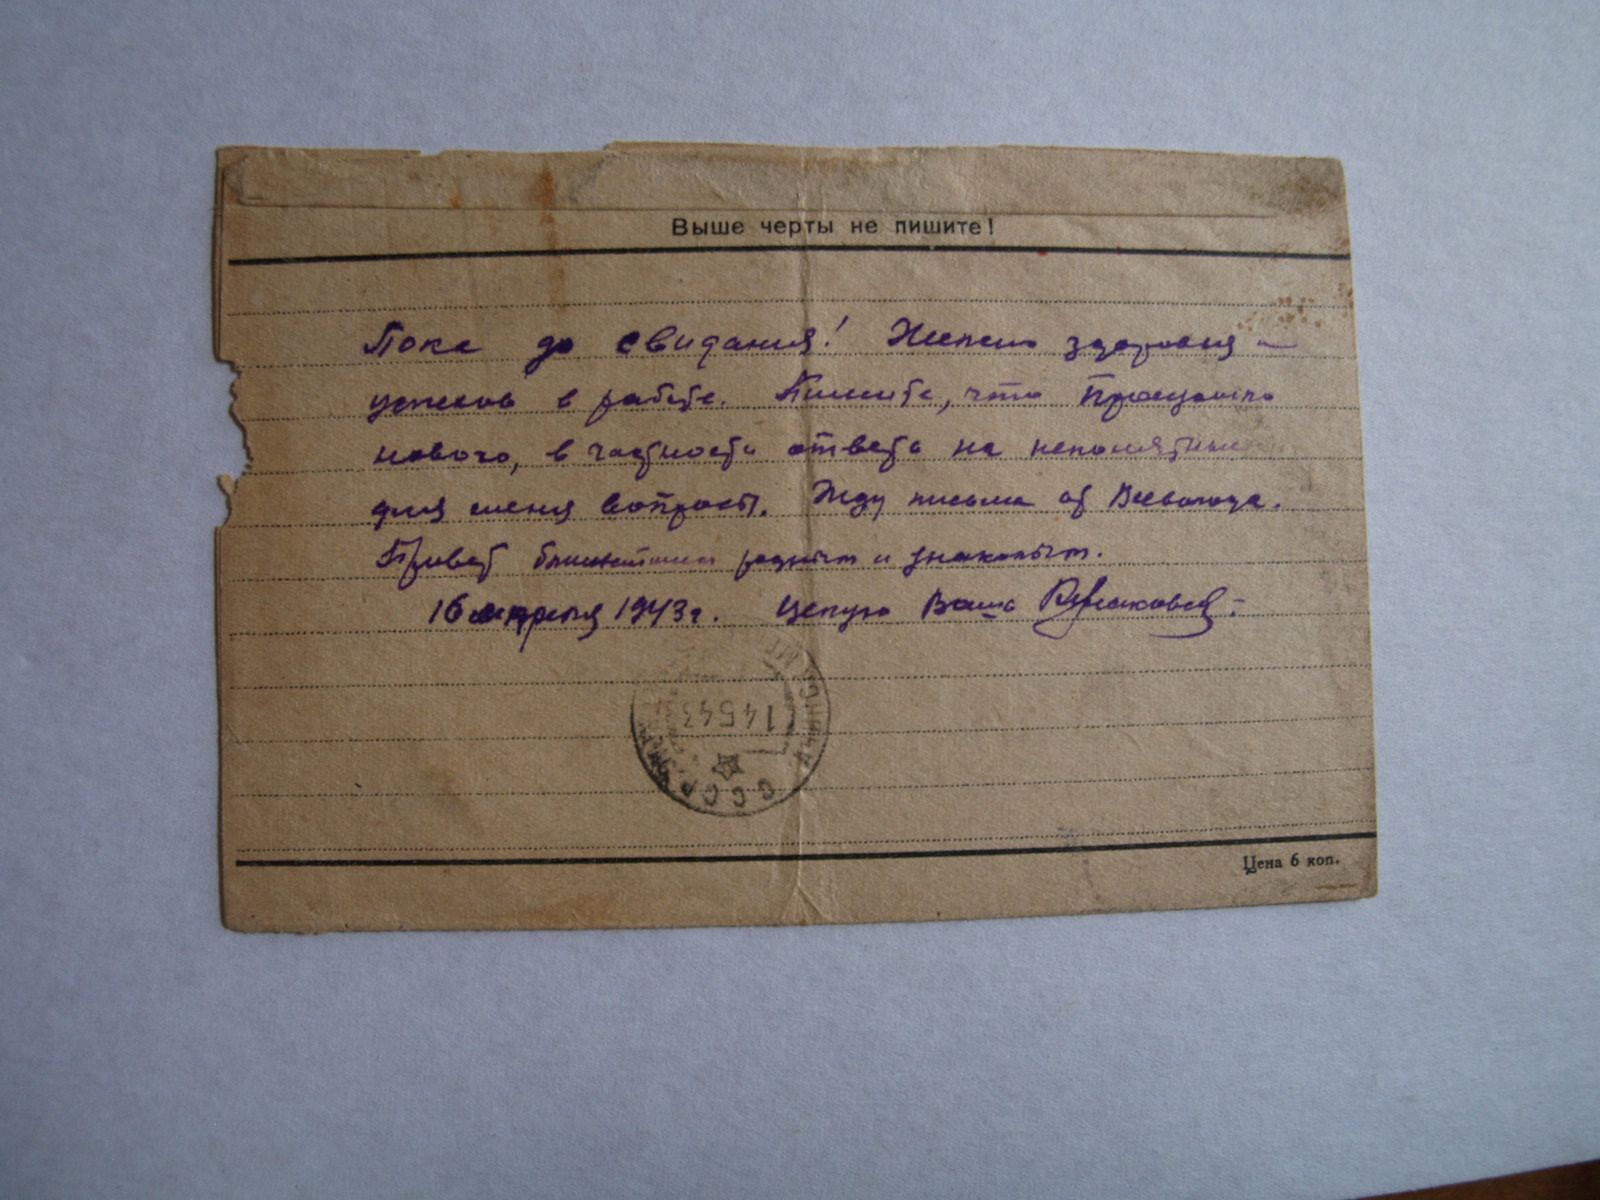 Выше черты не пишите!
Пока до свидания! Желаю здоровья и
успехов в работе. Пишите, что произошло
нового, в частности ответь на непонятные
для меня вопросы. Жду письма от Всеволода.
Привет ближайшим родным и знакомым.
16 апреля 1943 г. Целую Ваш
14 5 43
СССР
Цена 6 коп.